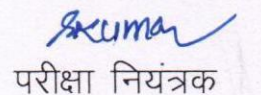 SKumar
परीक्षा नियंत्रक